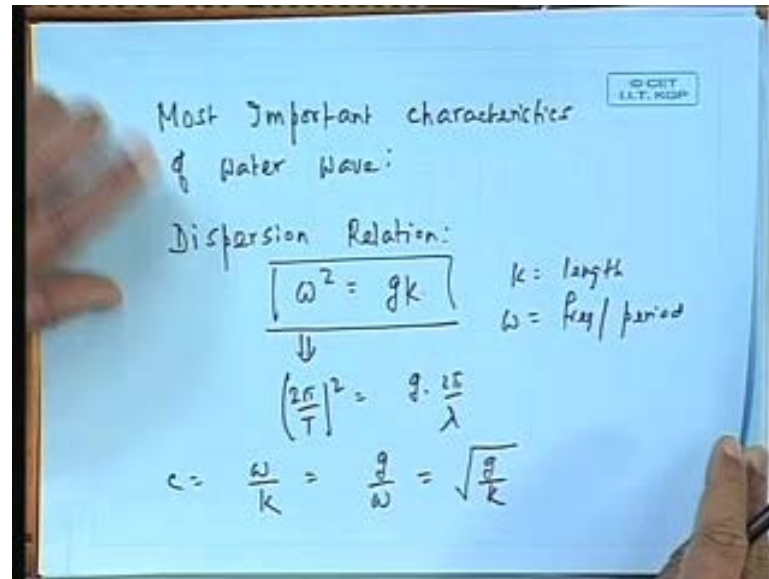 © CET
I.I.T. KGP
Most Important characteristics
of water wave:
Dispersion Relation:
ω² = gk
k = length
ω = freq / period
⇓
(2π/T)² = g. 2π/λ
c = ω/k = g/ω = √(g/k)